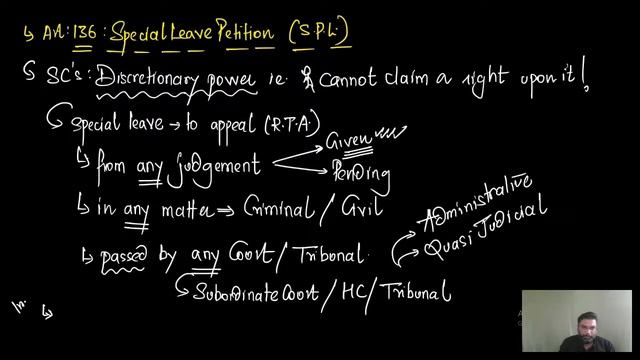 ↳ Art: 136: Special Leave Petition (S.P.L.)
↳ SC's: Discretionary power i.e. Cannot claim a right upon it!
↳ Special leave → to appeal (R.T.A.)
↳ from any judgement
Given
Pending
↳ in any matter ⇒ Criminal / Civil
Administrative
Quasi Judicial
↳ passed by any Court / Tribunal.
↳ Subordinate Court / HC / Tribunal
↳